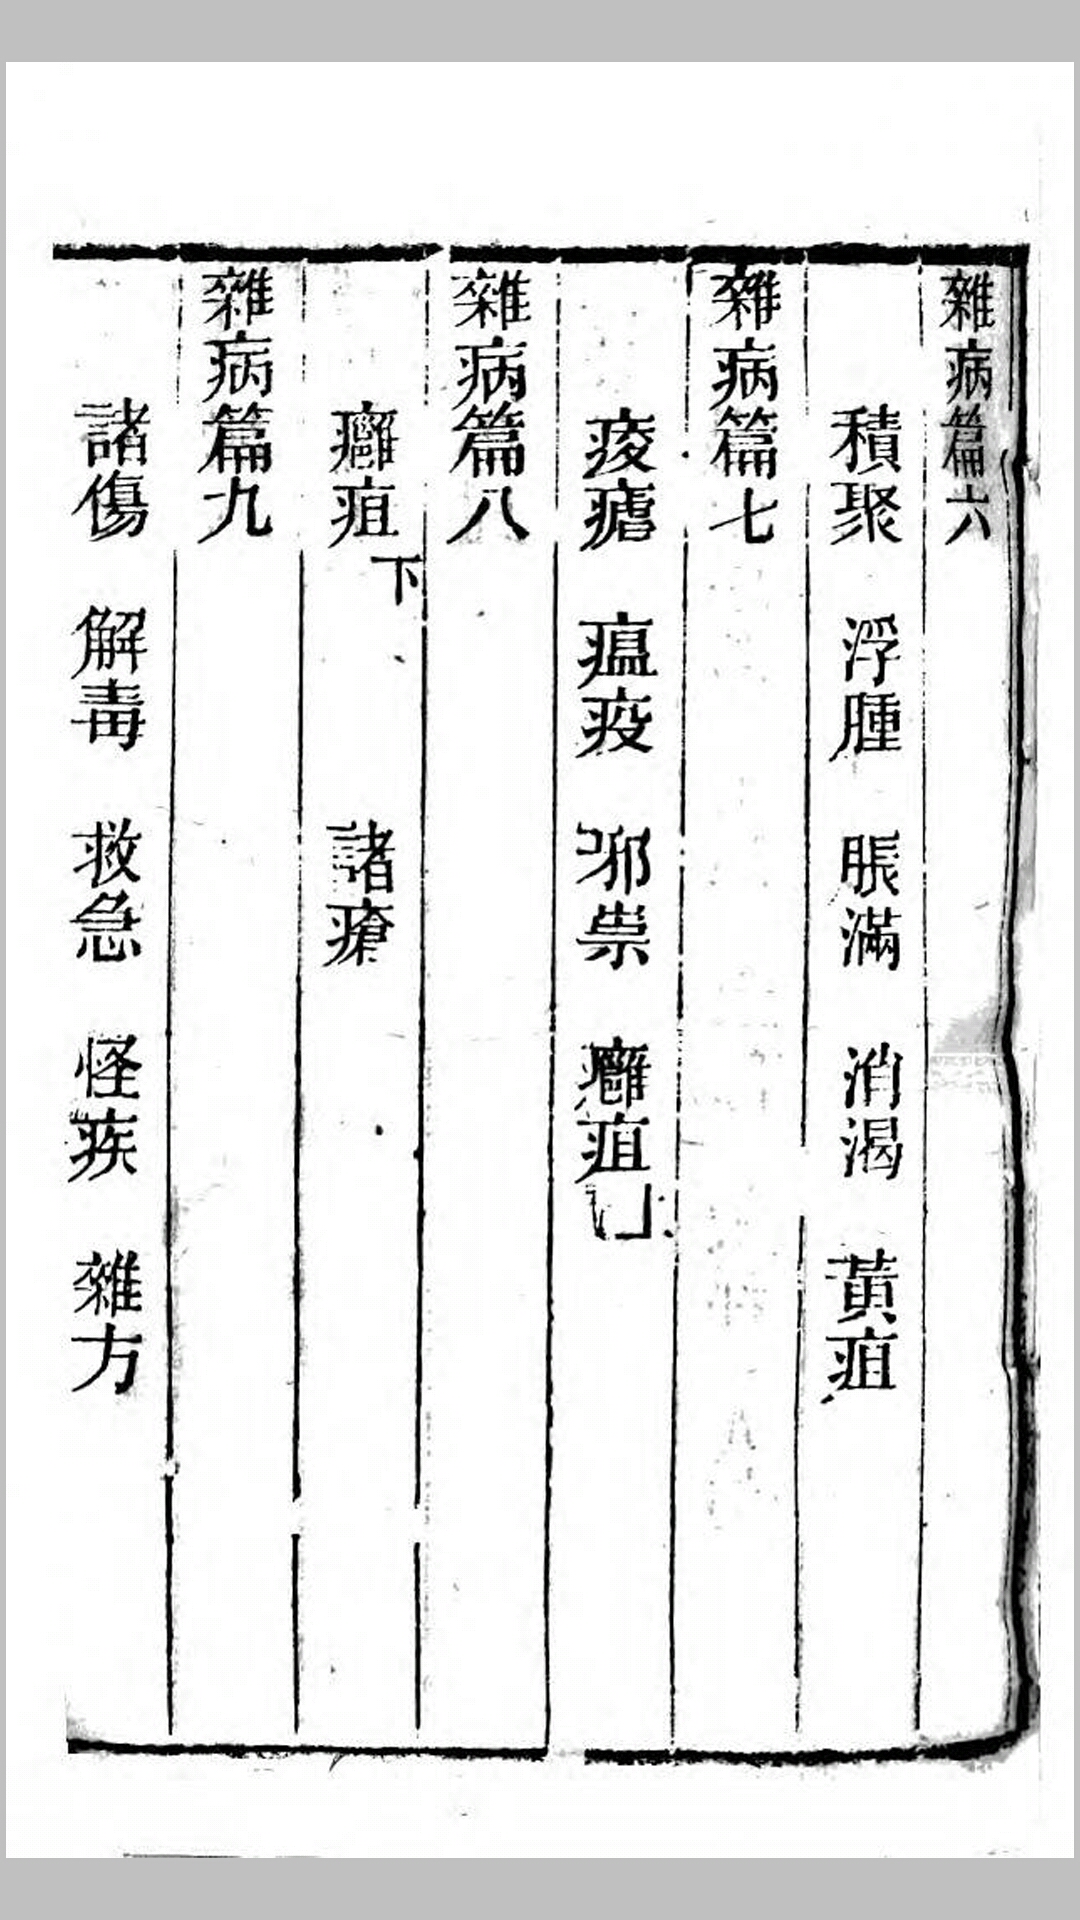 雜病篇六
積聚 浮腫 脹滿 消渴 黃疸
雜病篇七
痎瘧 瘟疫 邪祟 癰疽上
雜病篇八
癰疽下 諸瘡
雜病篇九
諸傷 解毒 救急 怪疾 雜方